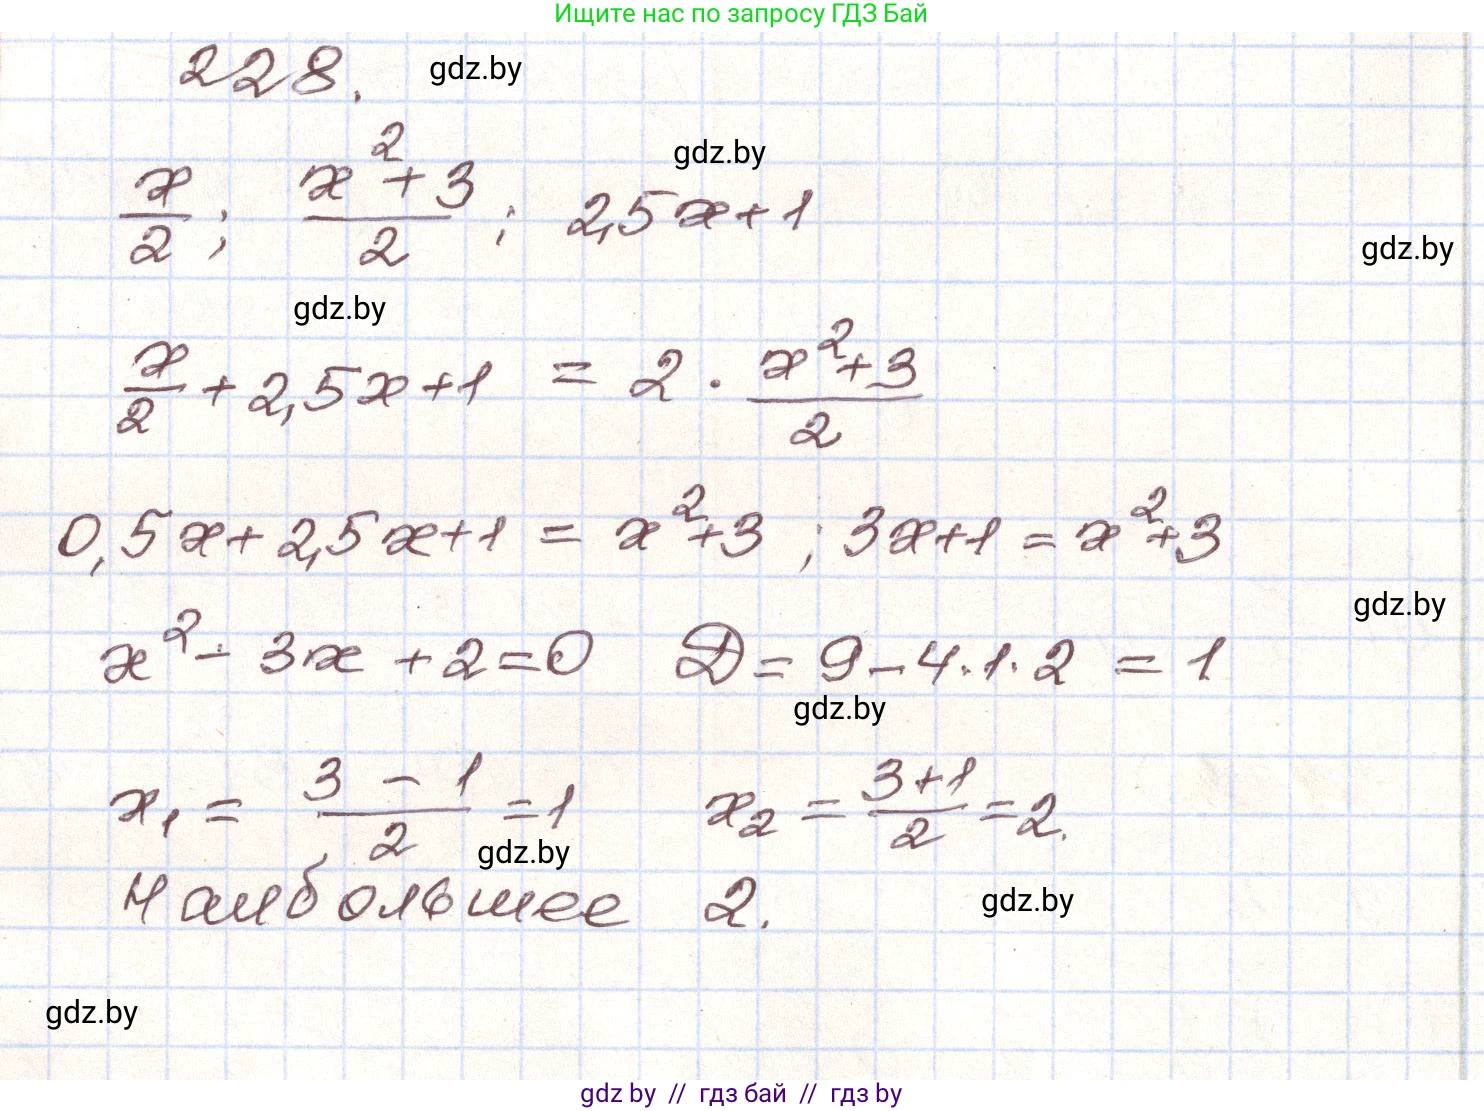 Ищите нас по запросу ГДЗ Бай
228. gdz.by
gdz.by
x/2; (x²+3)/2; 2,5x+1
gdz.by
gdz.by
x/2 + 2,5x+1 = 2 · (x²+3)/2
0,5x+2,5x+1 = x²+3; 3x+1 = x²+3
gdz.by
x² - 3x + 2 = 0 D = 9 - 4·1·2 = 1
gdz.by
x₁ = (3 - 1)/2 = 1 x₂ = (3+1)/2 = 2.
gdz.by
Наибольшее 2. gdz.by
gdz.by
gdz by // гдз бай // гдз by